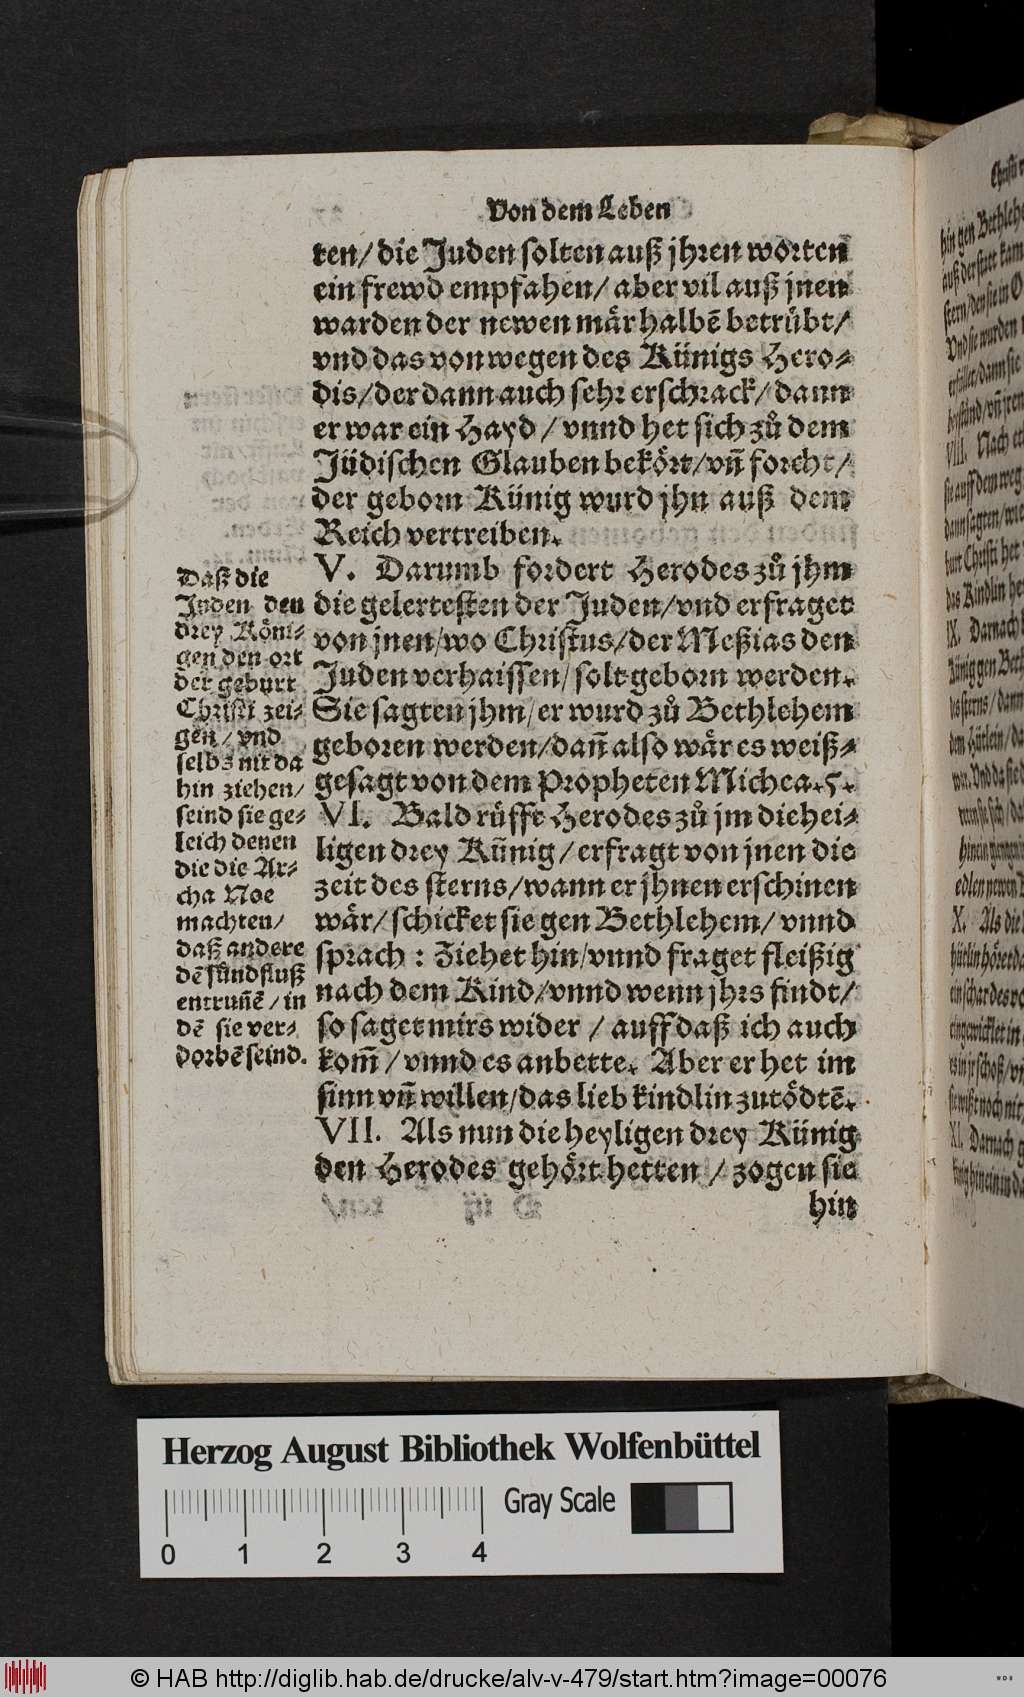 Von dem Leben
ten/ die Juden solten auß jhren worten
ein frewd empfahen/ aber vil auß jnen
warden der newen mär halbē betrübt/
vnd das von wegen des Künigs Hero-
dis/ der dann auch sehr erschrack/ dann
er war ein Hayd / vnnd het sich zů dem
Jüdischen Glauben bekört/ vñ forcht/
der geborn Künig wurd jhn auß dem
Reich vertreiben.
V. Darumb fordert Herodes zů jhm
die gelertesten der Juden/ vnd erfraget
von jnen/ wo Christus/ der Meßias den
Juden verhaissen/ solt geborn werden.
Sie sagten jhm/ er wurd zů Bethlehem
geboren werden/ dañ also wär es weiß-
gesagt von dem Propheten Michea. 5.
VI. Bald rüfft Herodes zů jm die hei-
ligen drey Künig / erfragt von jnen die
zeit des sterns/ wann er jhnen erschinen
wär/ schicket sie gen Bethlehem/ vnnd
sprach : Ziehet hin/ vnnd fraget fleißig
nach dem Kind/ vnnd wenn jhrs findt/
so saget mirs wider / auff daß ich auch
kom̃ / vnnd es anbette. Aber er het im
sinn vñ willen/ das lieb kindlin zutödtē.
VII. Als nun die heyligen drey Künig
den Herodes gehört hetten / zogen sie
hin
Daß die
Juden den
drey Köni-
gen den ort
der geburt
Christi zei-
gen / vnd
selbs nit da
hin ziehen/
seind sie ge-
leich denen
die die Ar-
cha Noe
machten/
daß andere
dē sündfluß
entruñē / in
dē sie ver-
dorbē seind.
hin gen Bethlehe
auß der statt kam
Vnd sie wurden
VIII. Nach
sie auff dem weg
dann sagten/ wie
burt Christi het
das Kindlin
IX. Darnach
Künig gen Beth
X. Als die
XI. Darnach
Herzog August Bibliothek Wolfenbüttel
Gray Scale
0 1 2 3 4
© HAB http://diglib.hab.de/drucke/alv-v-479/start.htm?image=00076